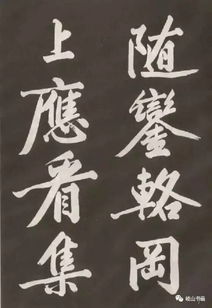 随鑾輅岡
上應看集
岐山书画